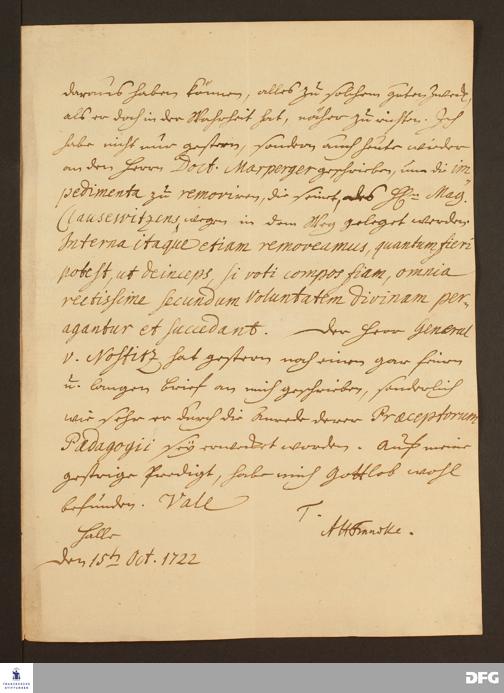 daraus haben können, alles zu solchem guten Zweck,
als er doch in der Wahrheit hat, näher zu richten. Ich
habe nicht nur gestern, sondern auch heute wieder
an den Herrn Doct. Marperger geschrieben, um die im-
pedimenta zu removiren, die seint des Hn. Mag.
Clausewitzens wegen in dem Weg geleget worden
Interna itaque etiam removeamus, quantum fieri
potest, ut deinceps, si voti compos fiam, omnia
rectissime secundum Voluntatem divinam per-
agantur et succedant. Der Herr General
v. Nostitz hat gestern noch einen gar feinen
u. langen brief an mich geschrieben, sonderlich
wie sehr er durch die Anrede derer Præceptorum
Pædagogii sey erwecket worden. Auf meine
gestrige Predigt, habe mich Gottlob wohl
befunden. Vale
T.
AHFrancke.
Halle
den 15th Oct. 1722
FRANCKESCHE
STIFTUNGEN
DFG